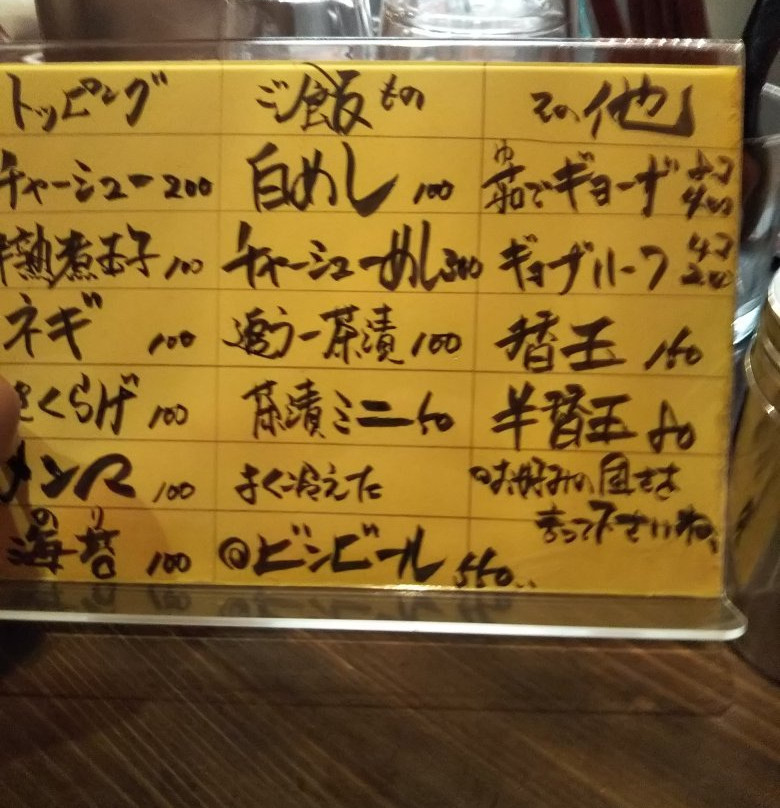 トッピング ご飯もの その他
チャーシュー 200 白めし 100 茹でギョーザ 8コ 400
ゆ
半熟煮玉子 100 チャーシューめし 300 ギョーザハーフ 4コ 200
ネギ 100 追う一茶漬 100 替玉 150
きくらげ 100 茶漬ミニ 50 半替玉 80
メンマ 100 よく冷えた お好みの固さを
のり 言って下さいね。
海苔 100 ビンビール 550